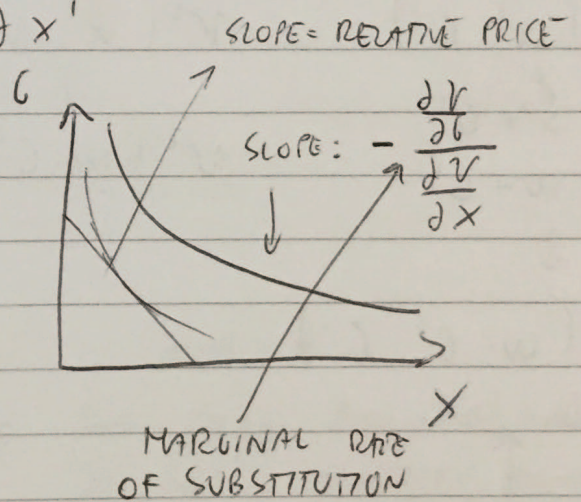 x'
SLOPE = RELATIVE PRICE
C
SLOPE: - ∂V/∂C / ∂V/∂X
X
MARGINAL RATE
OF SUBSTITUTION